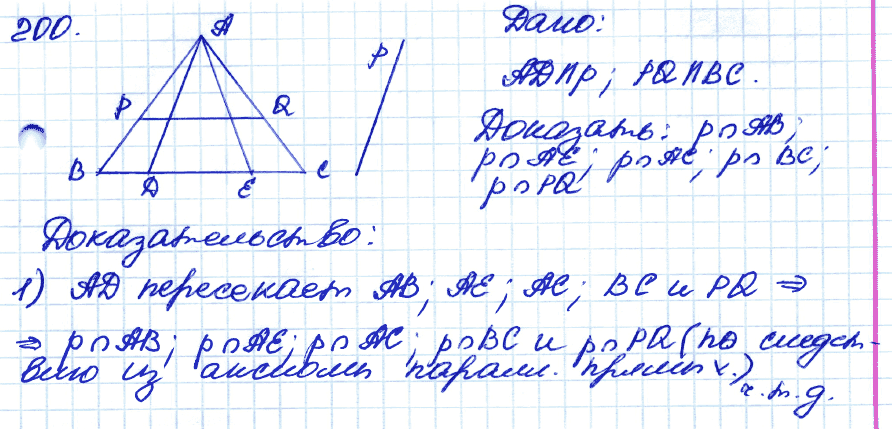 200.
A
P
Q
B
D
E
C
p
Дано:
AD || p; PQ || BC.
Доказать: p ∩ AB;
p ∩ AE; p ∩ AC; p ∩ BC;
p ∩ PQ
Доказательство:
1) AD пересекает AB; AE; AC; BC и PQ ⇒
⇒ p ∩ AB; p ∩ AE; p ∩ AC; p ∩ BC и p ∩ PQ (по следст-
вию из аксиомы паралл. прямых.)
ч.т.д.